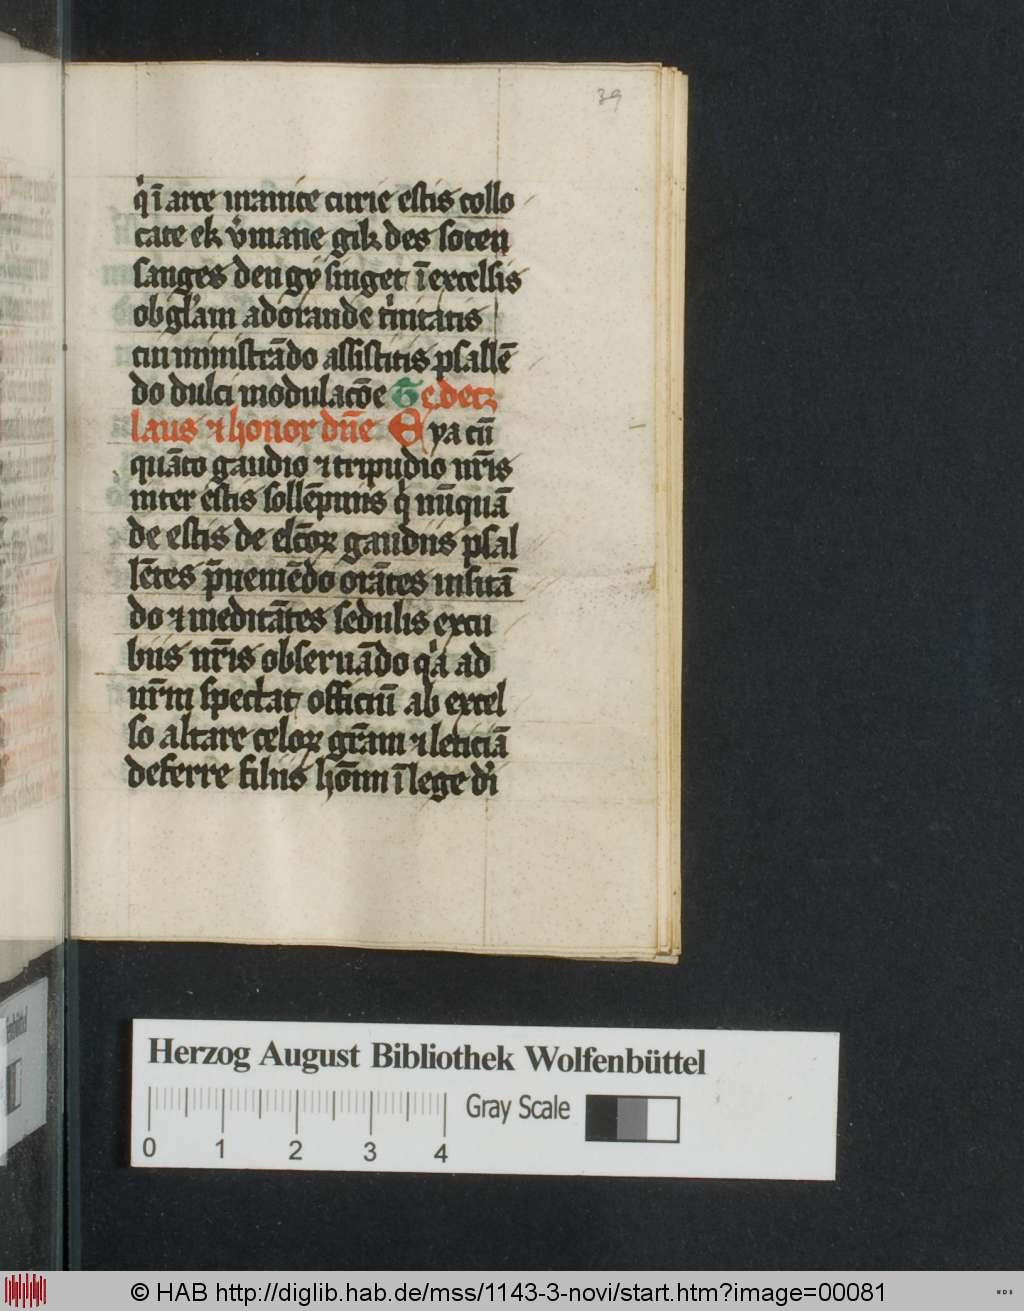 39
qͥ ī arce uranice curie estis collo
cate ek vͦmane gik des soten
sanges den gy singet ī excelsis
ob gl'am adorande tͥnitatis
cui ministrādo assistitis psallē
do dulci modulacōe Te decꝫ
laus ⁊ honor dn̄e Eya cū
quāto gaudio ⁊ tripudio nr̄is
inter estis sollēpniis qͥ nūquā
de estis de elc̄oꝝ gaudiis psal
lētes p̄ueniēdo orātes insitā
do ⁊ meditātes sedulis excu
biis nr̄is obseruādo qͥa ad
ur̄m spectat officiū ab excel
so altare celoꝝ gr̄am ⁊ leticiā
deferre filiis hōnn ī lege dͥ
Herzog August Bibliothek Wolfenbüttel
Gray Scale
0 1 2 3 4
© HAB http://diglib.hab.de/mss/1143-3-novi/start.htm?image=00081